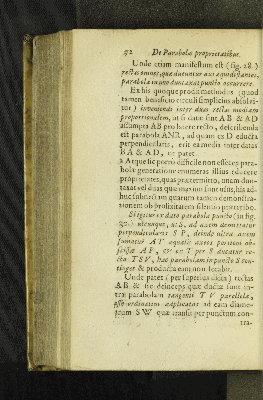 92 De Parabolæ proprietatibus.
Unde etiam manifestum est (fig. 28.)
rectas omnes, quæ ducuntur axi æquidistantes,
parabolæ in uno duntaxat puncto occurrere.
Ex his quoque prodit methodus (quod
tamen beneficio circuli simplicius absolvi-
tur) inveniendi inter duas rectas mediam
proportionalem, ut si datæ sint AB & AD
assumpta AB pro latere recto, describenda
est parabola ANR, ad quam ex D educta
perpendicularis, erit ea media inter datas
BA & AD, ut patet.
Atque sic porro difficile non esset ex para-
bolæ generatione innumeras illius educere
proprietates, quas prætermitto, unam dun-
taxat vel duas quæ maximi sunt usus, his ad-
huc subnectam quarum tamen demonstra-
tionem ob prolixitatem silentio prætereo.
Si igitur ex dato parabolæ puncto (in fig.
utcunque, ut S, ad axem demittatur
perpendicularis S P, deinde ultra axem
sumatur AT æqualis
AP, & ex T per S ducatur re-
cta TSV, hæc parabolam in puncto S con-
tinget & producta eam non secabit.
Unde patet (per superius dicta) rectas
AB & sic deinceps quæ ductæ sunt in-
tra parabolam tangenti T V parallelæ,
esse ordinatim applicatas ad eam diame-
trum S W quæ transit per punctum con-